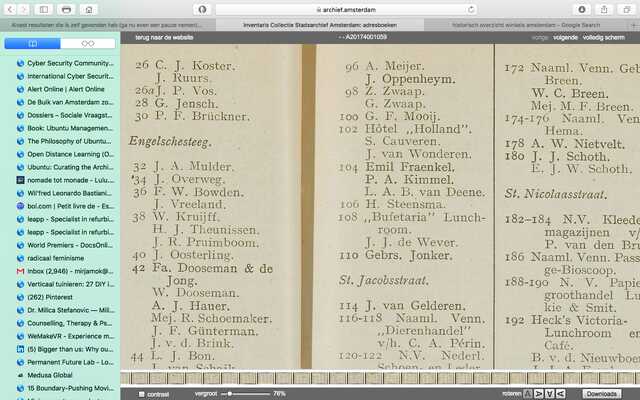 archief.amsterdam
Alvast resultaten die ik zelf gevonden heb (ga nu even een pauze nemen)...
Inventaris Collectie Stadsarchief Amsterdam: adresboeken
historisch overzicht winkels amsterdam - Google Search
terug naar de website
- - A20174001059
vorige
volgende
volledig scherm
Cyber Security Community...
International Cyber Securit...
Alert Online | Alert Online
De Bulk van Amsterdam zo...
Dossiers – Sociale Vraagst...
Book: Ubuntu Managemen...
The Philosophy of Ubuntu...
Open Distance Learning (O...
Ubuntu: Curating the Archi...
nomade tot monade - Lulu...
Wil'fred Leonardo Bastiani...
bol.com | Petit livre de - Es...
leapp - Specialist in refurbi...
leapp - Specialist in refurbi...
World Premiers - DocsOnli...
radicaal feminisme
Inbox (2,946) - mirjamok@...
Verticaal tuinieren: 27 DIY i...
(262) Pinterest
Dr. Milica Stefanovic – Mill...
Counselling, Therapy & Ps...
WeMakeVR - Experience m...
(5) Bigger than us: Why ou...
Permanent Future Lab - Lo...
Medusa Global
15 Boundary-Pushing Movi...
26 C. J. Koster.
J. Ruurs.
26a J. P. Vos.
28 G. Jensch.
30 P. F. Brückner.
Engelschesteeg.
32 J. A. Mulder.
34 J. Overweg.
36 F. W. Bowden.
J. Vreeland.
38 W. Kruijff.
H. J. Theunissen.
J. R. Pruimboom.
40 J. Oosterling.
42 Fa. Dooseman & de
Jong.
W. Dooseman.
A. J. Hauer.
Mej. R. Schoemaker.
J. F. Günterman.
J. v. d. Brink.
44 L. J. Bon.
J. van Schaik.
96 A. Meijer.
J. Oppenheym.
98 Z. Zwaap.
G. Zwaap.
100 G. F. Mooij.
102 Hôtel „Holland".
S. Cauveren.
J. van Wonderen.
104 Emil Fraenkel.
P. A. Kimmel.
L. A. B. van Deene.
106 H. Steensma.
108 „Bufetaria" Lunch-
room.
J. J. de Wever.
110 Gebrs. Jonker.
St. Jacobsstraat.
114 J. van Gelderen.
116-118 Naaml. Venn.
„Dierenhandel"
v/h. C. A. Périn.
120-122 N.V. Nederl.
Schoen- en Leder-
172 Naaml. Venn. Geb
Breen.
W. C. Breen.
Mej. M. F. Breen.
174-176 Naaml. Ven
Hema.
178 A. W. Nietvelt.
180 J. J. Schoth.
E. J. W. Schoth.
St. Nicolaasstraat.
182–184 N.V. Kleede
magazijnen v/
P. van den Bru
186 Naaml. Venn. Pass
ge-Bioscop.
188-190 N. V. Papie
groothandel Lu
kie & Smit.
192 Heck's Victoria-
Lunchroom en
Café.
B. v. d. Nieuwboe
contrast
vergroot
76%
roteren
A
A
A
A
Downloads